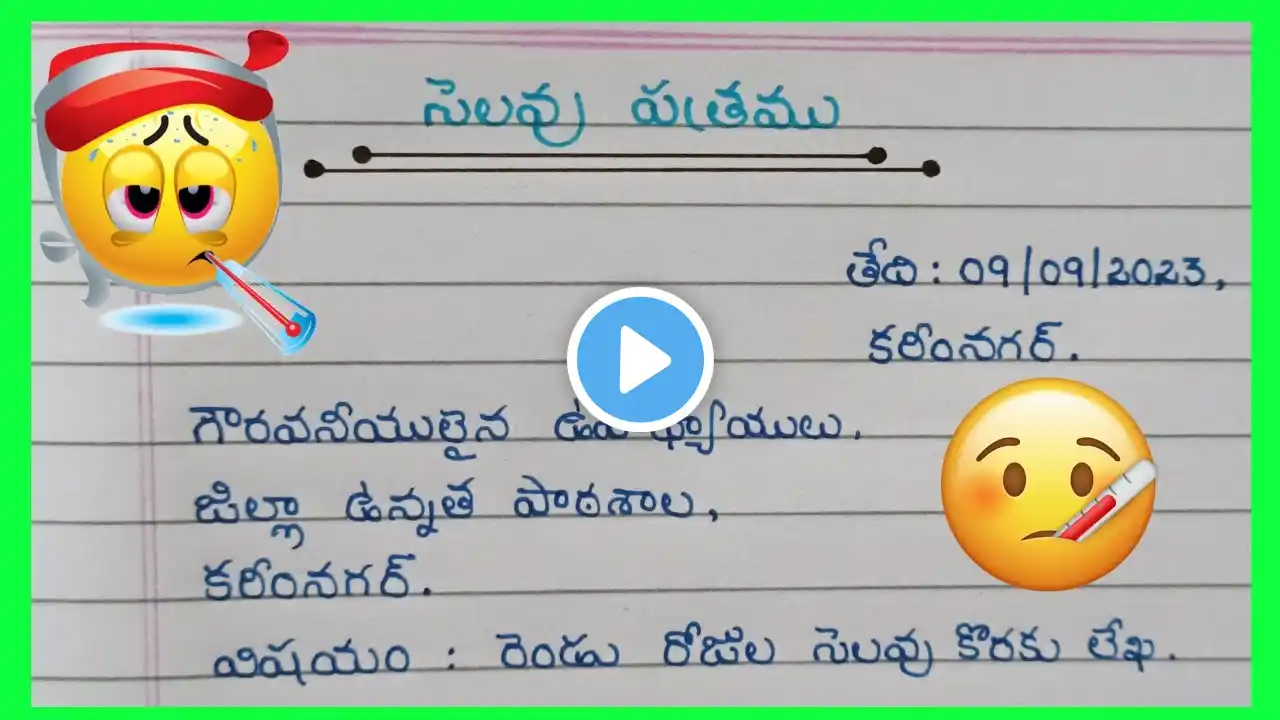 సెలవు పత్రము
తేది : 09/09/2023,
కరీంనగర్.
గౌరవనీయులైన
జిల్లా ఉన్నత పాఠశాల,
కరీంనగర్.
విషయం : రెండు రోజుల సెలవు కొరకు లేఖ.